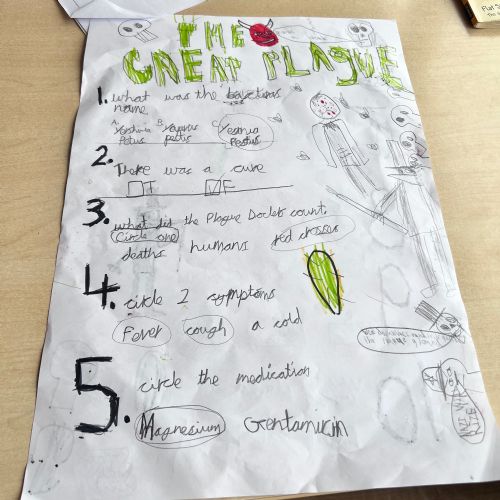 THE
GREAT PLAGUE
1. what was the bacterias
name
A. B. C.
Yershina Yayanus Yesnia
Petus pestis Pestus
2.
There was a cure
T F
3.
what did the Plague Docters count.
Circle one
deaths humans red crosses
4. circle 2 symptoms
Fever cough a cold
5. circle the medication
Magnesium Gentamicin